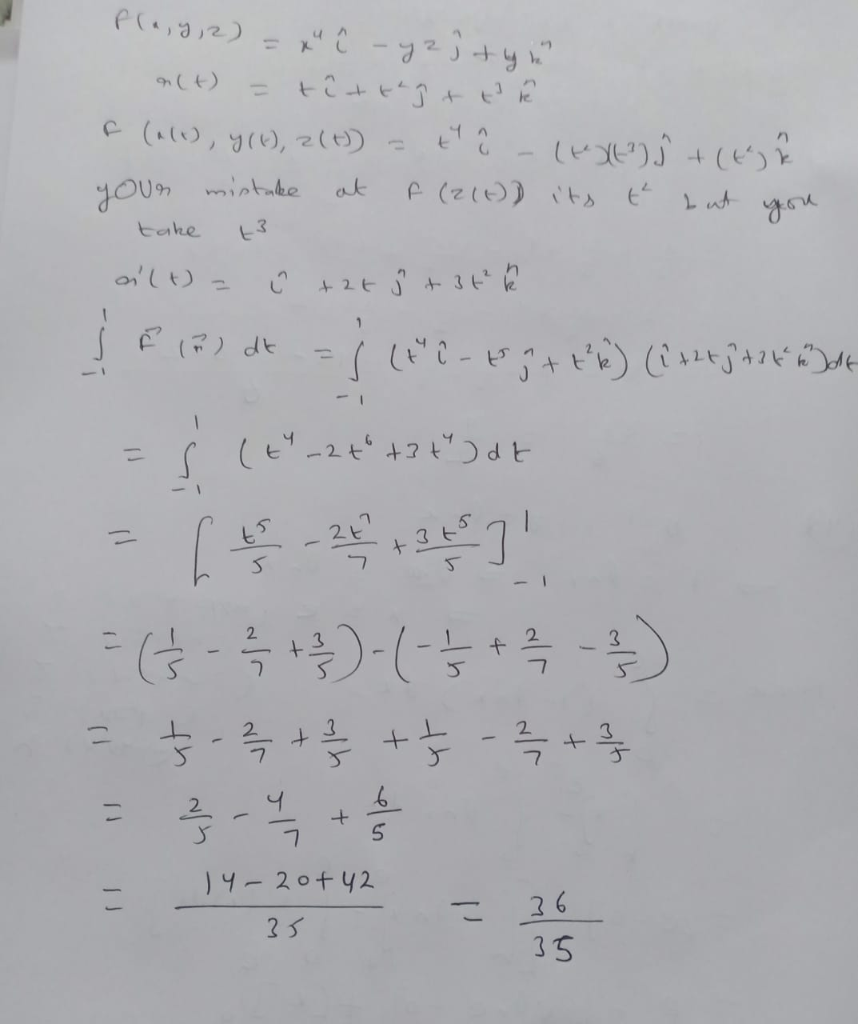 F(x,y,z) = x⁴ î - yz ĵ + y k̂
r(t) = t î + t² ĵ + t³ k̂
F (x(t), y(t), z(t)) = t⁴ î - (t²)(t³) ĵ + (t²) k̂
your mistake at F (z(t)) its t² but you
take t³
r'(t) = î + 2t ĵ + 3t² k̂
∫₋₁¹ F⃗ (r⃗) dt = ∫₋₁¹ (t⁴ î - t⁵ ĵ + t² k̂) (î + 2t ĵ + 3t² k̂) dt
= ∫₋₁¹ (t⁴ - 2t⁶ + 3t⁴) dt
= [ t⁵/5 - 2t⁷/7 + 3t⁵/5 ]₋₁¹
= (1/5 - 2/7 + 3/5) - (-1/5 + 2/7 - 3/5)
= 1/5 - 2/7 + 3/5 + 1/5 - 2/7 + 3/5
= 2/5 - 4/7 + 6/5
= (14 - 20 + 42)/35 = 36/35